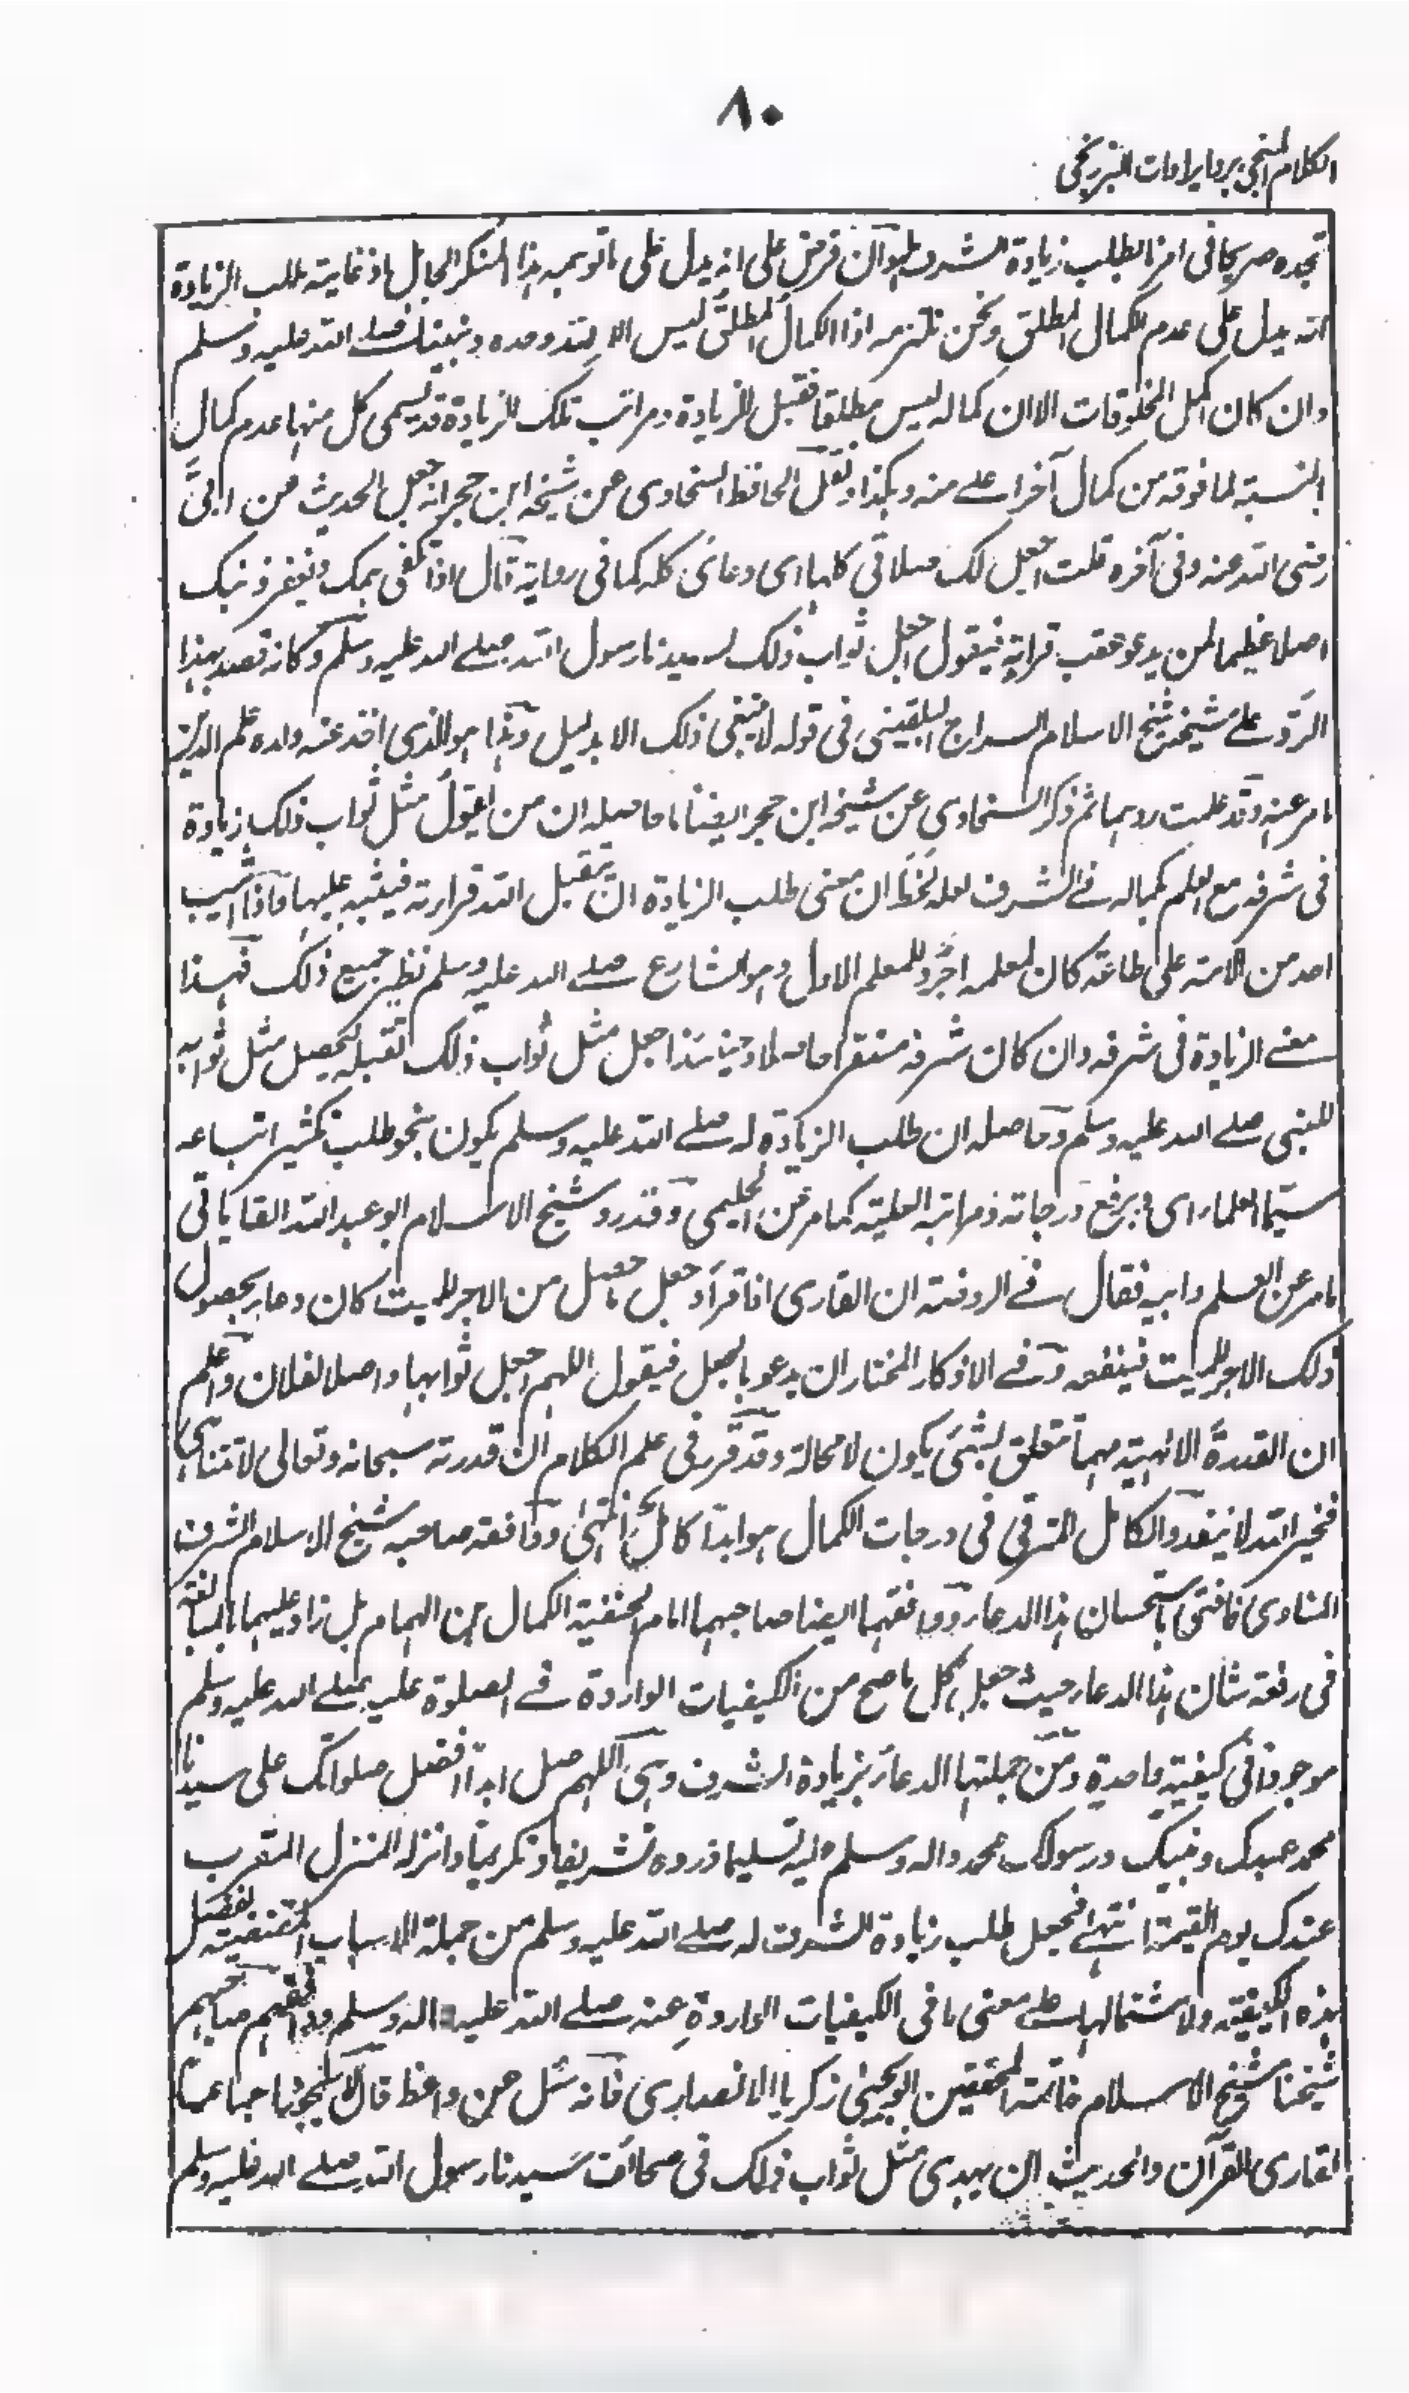 ٨٠
الكلام المنجى برد ايرادات البرزنجى
تجده صريحا فى امرنا بطلب زيادة الشرف له ولو آن فرض على انه يدل على ما توهمه هذا المنكر الجاهل اذ غاية طلب الزيادة
انه يدل على عدم الكمال المطلق ونحن نلتزمه اذا الكمال المطلق ليس الا لله وحده ونبينا صلے الله عليه وسلم
وان كان اكمل المخلوقات الا ان كماله ليس مطلقا فقبل الزيادة ومراتب تلك الزيادة قد يسمى كل منها عدم كمال
بالنسبة لما فوقه من كمال آخر اعلے منه وهكذا ونقل الحافظ السخاوى عن شيخه ابن حجر انه جعل الحديث عن ابىّ
رضى الله عنه وفى آخره قلت اجعل لك صلاتى كلها اى دعائى كله كما فى رواية قال اذا تكفى همك ويغفر ذنبك
اصلا عظيما لمن يدعو عقب قراءته فيقول اجعل ثواب ذلك لسيدنا رسول الله صلے الله عليه وسلم وكانه قصد بهذا
الرد علے شيخه شيخ الاسلام السراج البلقينى فى قوله لا ينبغى ذلك الا بدليل وهذا هو الذى اخذ عنه ولده علم الدين
ما مر عنه وقد علمت ردهما ثم ذكر السخاوى عن شيخه ابن حجر ايضا ما حاصله ان من يقول مثل ثواب ذلك زيادة
فى شرفه مع العلم بكماله فے الشرف لعله لحظ ان معنى طلب الزيادة ان يتقبل الله قراءته فيثيبه عليها فاذا اثيب
احد من الامة على طاعة كان لمعلمه اجر وللمعلم الاول وهو الشارع صلے الله عليه وسلم نظير جميع ذلك فهذا
معنے الزيادة فى شرفه وان كان شرفه مستقرا حاصلا وحينئذ اجعل مثل ثواب ذلك تقبله ليحصل مثل ثوابه
للنبى صلے الله عليه وسلم وحاصله ان طلب الزيادة له صلے الله عليه وسلم يكون بنحو طلب تكثير اتباعه
سيما العلماء اى وبرفع درجاته ومراتبه العلية كما مر عن الحليمى وقد رد شيخ الاسلام ابو عبد الله القاياتى
ما مر عن العلم وابيه فقال فے الروضة ان القارى اذا قرأ وجعل ما حصل من الاجر للميت كان دعاء بحصول
ذلك الاجر للميت فينفعه وفے الاذكار المختار ان يدعو بالجعل فيقول اللهم اجعل ثوابها واصلا لفلان واعلم
ان القدرة الالهية مهما تتعلق بشئ يكون لا محالة وقد قرر فى علم الكلام ان قدرته سبحانه وتعالى لا تتناهى
فخير الله لا ينفد والكامل المترقى فى درجات الكمال هو ابدا كامل انتهى ووافقه صاحبه شيخ الاسلام الشرف
المناوى فافتى باستحسان هذا الدعاء ووافقهما ايضا صاحبهما امام الحنفية الكمال بن الهمام بل زاد عليهما بالمبالغة
فى رفعة شان هذا الدعاء حيث جعل كل ما صح من الكيفيات الواردة فے الصلوة عليه صلے الله عليه وسلم
موجودا فى كيفية واحدة ومن جملتها الدعاء بزيادة الشرف وهى اللهم صل ابدا افضل صلواتك على سيدنا
محمد عبدك ونبيك ورسولك محمد واله وسلم عليه تسليما وزده تشريفا وتكريما وانزله المنزل المقرب
عندك يوم القيمة انتهے فجعل طلب زيادة الشرف له صلے الله عليه وسلم من جملة الاسباب المقتضية لفضل
هذه الكيفية ولاشتمالها على معنى ما فى الكيفيات الواردة عنه صلے الله عليه واله وسلم ووافقهم صاحبهم
شيخنا شيخ الاسلام خاتمة المحققين ابو يحيى زكريا الانصارى فانه سئل عن واعظ قال لا يجوز اجماعا
لقارى القرآن والحديث ان يهدى مثل ثواب ذلك فى صحائف سيدنا رسول الله صلے الله عليه وسلم